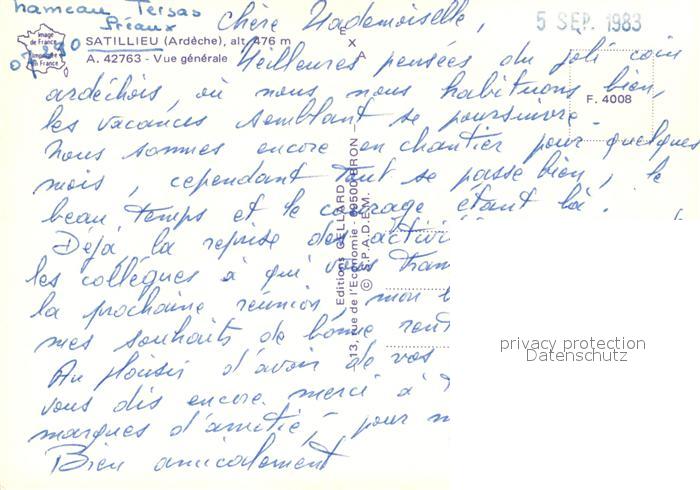 hameau Tersas
Préaux
07290
Chère Mademoiselle,
5 SEP. 1983
Image de France
Imprimé en France
SATILLIEU (Ardèche), alt. 476 m
A. 42763 - Vue générale
E X A
F. 4008
Meilleures pensées du joli coin
ardéchois, où nous nous habituons bien,
les vacances semblant se poursuivre.
Nous sommes encore en chantier pour quelques
mois, cependant tout se passe bien, le
beau temps et le courage étant là.
Déjà la reprise des activi
les collègues à qui vous tran
la prochaine réunion, mon
mes souhaits de bonne rent
Au plaisir d'avoir de vos
vous dis encore merci à
marques d'amitié, pour
Bien amicalement
Editions GELLARD
13, rue de l'Economie - 69500 BRON
© S.P.A.D.E.M.
privacy protection
Datenschutz